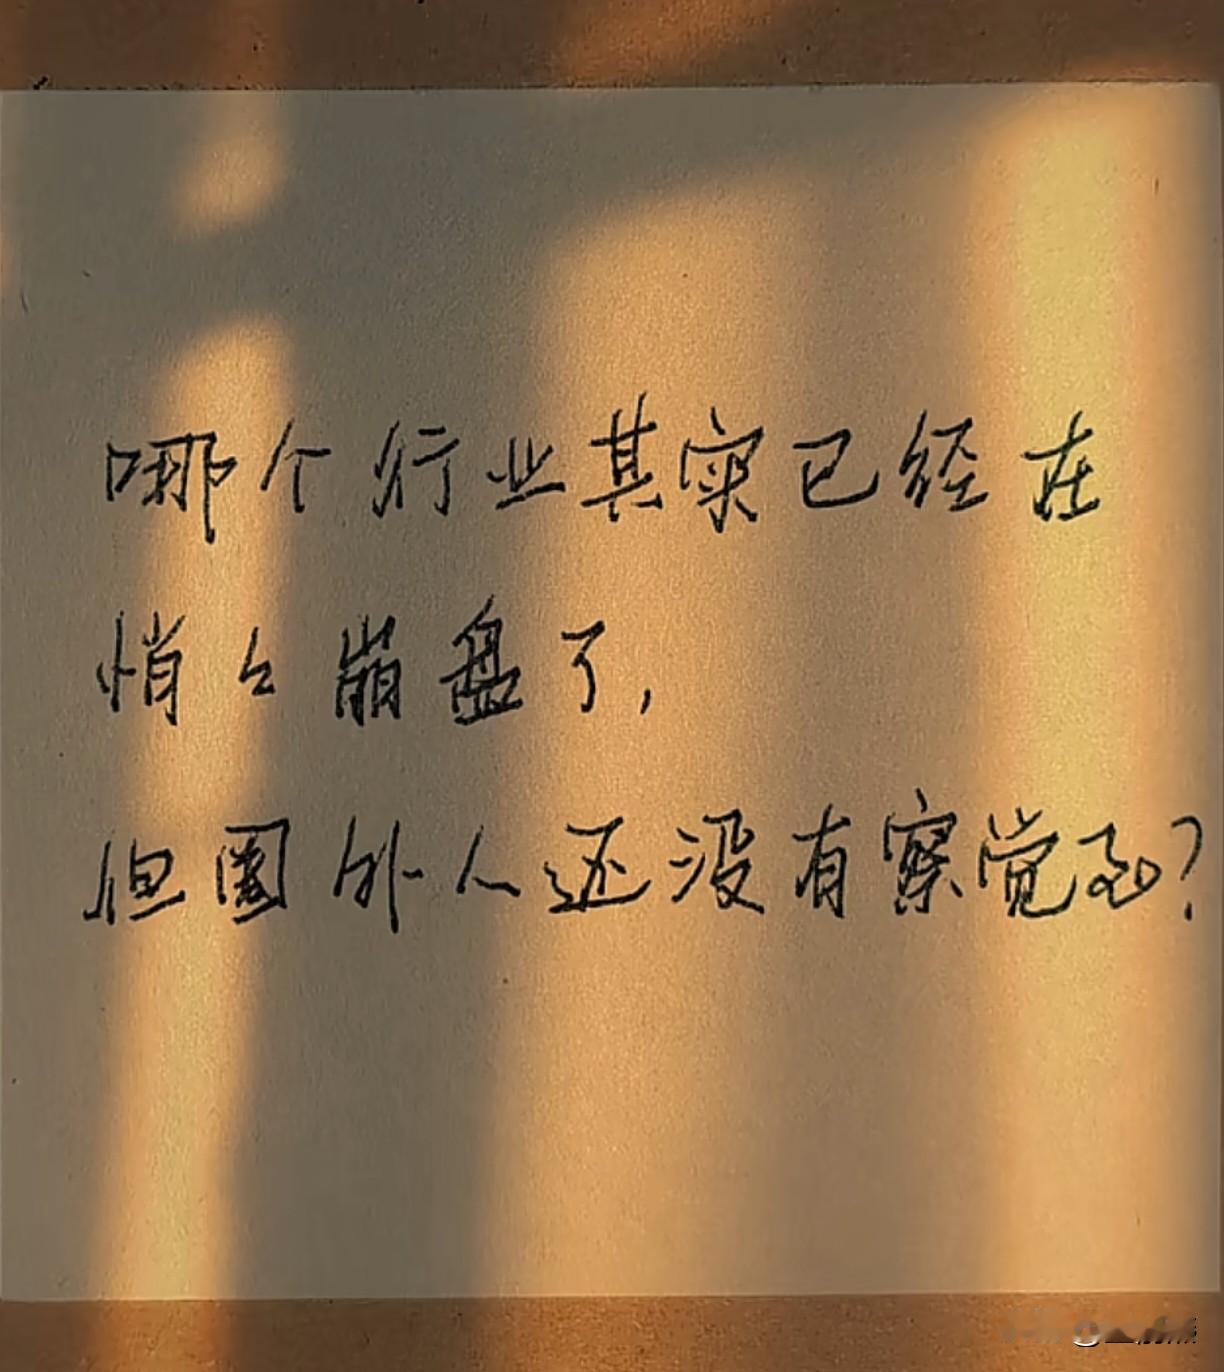 哪个行业其实已经在
悄々崩盘了,
但圈外人还没有察觉到?